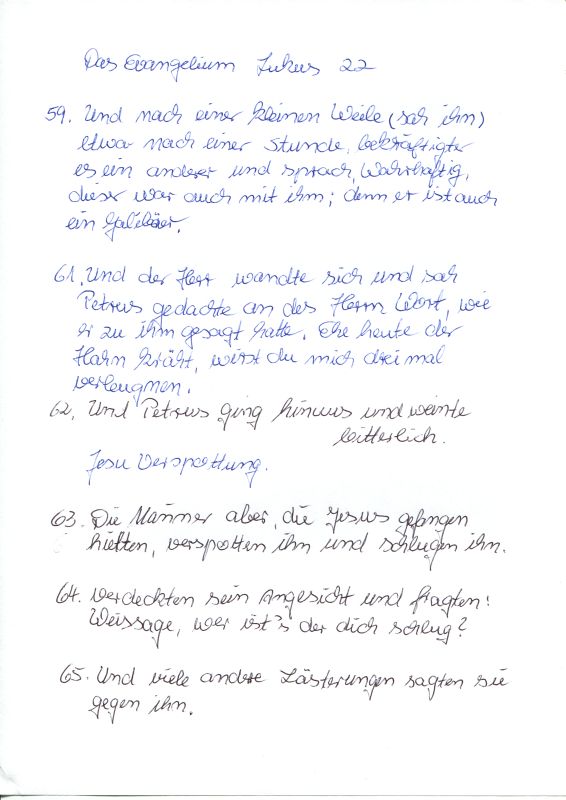 Das Evangelium Lukas 22
59. Und nach einer kleinen Weile (sah ihn)
etwa nach einer Stunde, bekräftigte
es ein anderer und sprach, Wahrhaftig,
dieser war auch mit ihm; denn er ist auch
ein Galiläer.
61. Und der Herr wandte sich und sah
Petrus gedachte an des Herrn Wort, wie
er zu ihm gesagt hatte. Ehe heute der
Hahn kräht, wirst du mich drei mal
verleugnen.
62. Und Petrus ging hinaus und weinte
bitterlich.
Jesu Verspottung.
63. Die Männer aber, die Jesus gefangen
hielten, verspotten ihn und schlugen ihn.
64. verdeckten sein Angesicht und fragten:
Weissage, wer ist's der dich schlug?
65. Und viele andere Lästerungen sagten sie
gegen ihn.